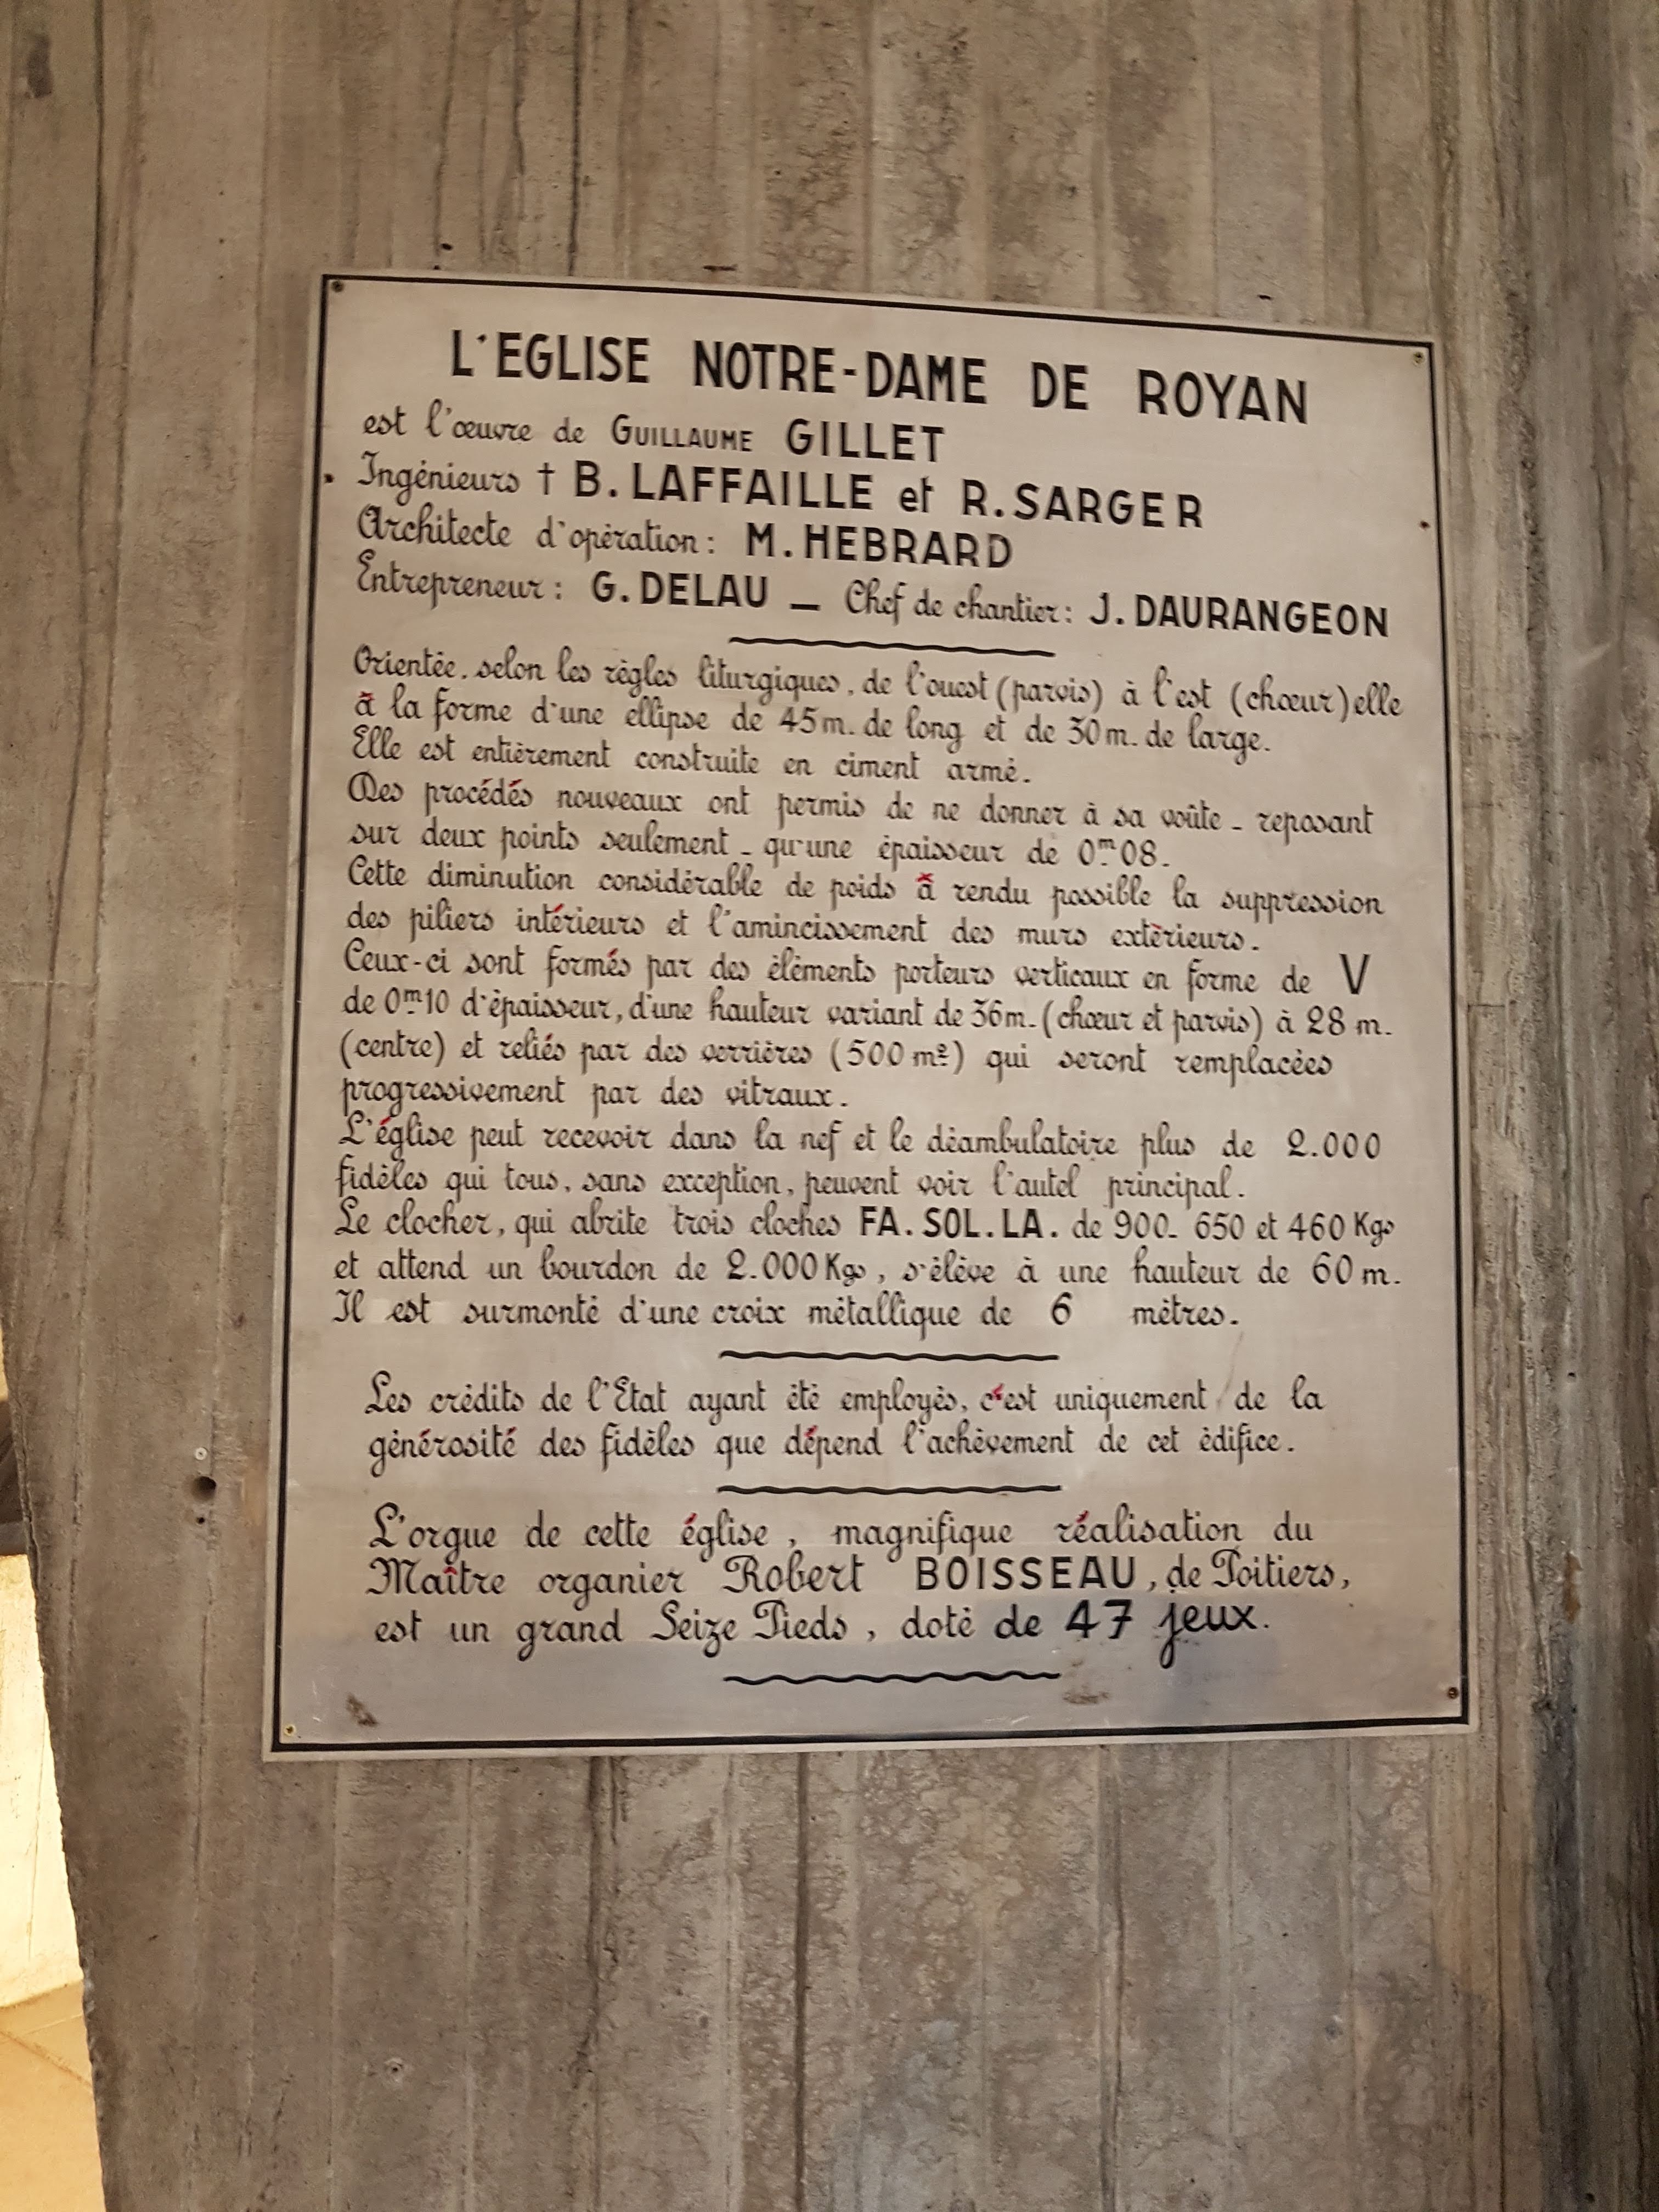 L'EGLISE NOTRE-DAME DE ROYAN
est l'œuvre de GUILLAUME GILLET
Ingénieurs † B. LAFFAILLE et R. SARGER
Architecte d'opération : M. HEBRARD
Entrepreneur : G. DELAU _ Chef de chantier : J. DAURANGEON
Orientée, selon les règles liturgiques, de l'ouest (parvis) à l'est (chœur) elle
à la forme d'une ellipse de 45 m. de long et de 30 m. de large.
Elle est entièrement construite en ciment armé.
Des procédés nouveaux ont permis de ne donner à sa voûte - reposant
sur deux points seulement - qu'une épaisseur de 0m08.
Cette diminution considérable de poids à rendu possible la suppression
des piliers intérieurs et l'amincissement des murs extèrieurs.
Ceux-ci sont formés par des éléments porteurs verticaux en forme de V
de 0m10 d'épaisseur, d'une hauteur variant de 36 m. (chœur et parvis) à 28 m.
(centre) et reliés par des verrières (500 m²) qui seront remplacées
progressivement par des vitraux.
L'église peut recevoir dans la nef et le déambulatoire plus de 2.000
fidèles qui tous, sans exception, peuvent voir l'autel principal.
Le clocher, qui abrite trois cloches FA. SOL. LA. de 900. 650 et 460 Kgs
et attend un bourdon de 2.000 Kgs, s'élève à une hauteur de 60 m.
Il est surmonté d'une croix métallique de 6 mètres.
Les crédits de l'Etat ayant été employés, c'est uniquement de la
générosité des fidèles que dépend l'achèvement de cet édifice.
L'orgue de cette église, magnifique réalisation du
Maître organier Robert BOISSEAU, de Poitiers,
est un grand Seize Pieds, doté de 47 jeux.